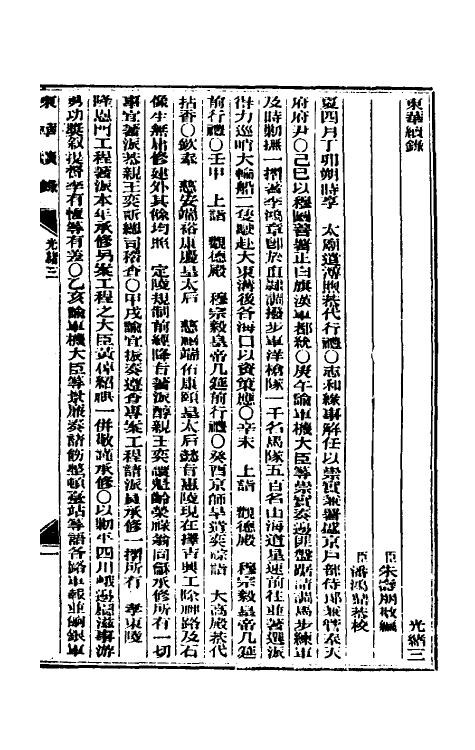 東華續錄
光緒三
臣朱壽朋敬編
臣潘鴻鼎恭校
夏四月丁卯朔時享　太廟遣溥煦恭代行禮〇志和緣事解任以崇實兼署盛京戶部侍郎兼管奉天
府府尹〇己巳以穆圖善署正白旗漢軍都統〇庚午諭軍機大臣等崇實奏邊匪盤踞請調馬步練軍
及時勦撫一摺著李鴻章卽於直隸調撥步軍洋槍隊一千名馬隊五百名由海道星速前往並著選派
得力巡哨大輪船二隻駛赴大東溝後各海口以資策應〇辛未　上詣　觀德殿　穆宗毅皇帝几筵
前行禮〇壬申　上詣　觀德殿　穆宗毅皇帝几筵前行禮〇癸酉京師旱遣奕誴詣　大高殿恭代
拈香〇欽奉　慈安端裕康慶皇太后　慈禧端佑康頤皇太后懿旨惠陵現在擇吉興工除神路及石
像生無庸修建外其餘均照　定陵規制前經降旨著派醇親王奕譞魁齡榮祿翁同龢承修所有一切
事宜著派恭親王奕訢總司稽查〇甲戌諭宜振奏遵查專案工程請派員承修一摺所有　孝東陵
隆恩門工程著派本年承修另案工程之大臣黃倬紹祺一併敬謹承修〇以勦平四川峨邊夷滋事游
勇功獎敘提督李有恆等有差〇乙亥諭軍機大臣等景廉奏請飭整頓臺站等語各路軍報並餉銀軍
東華續錄　光緒三　一